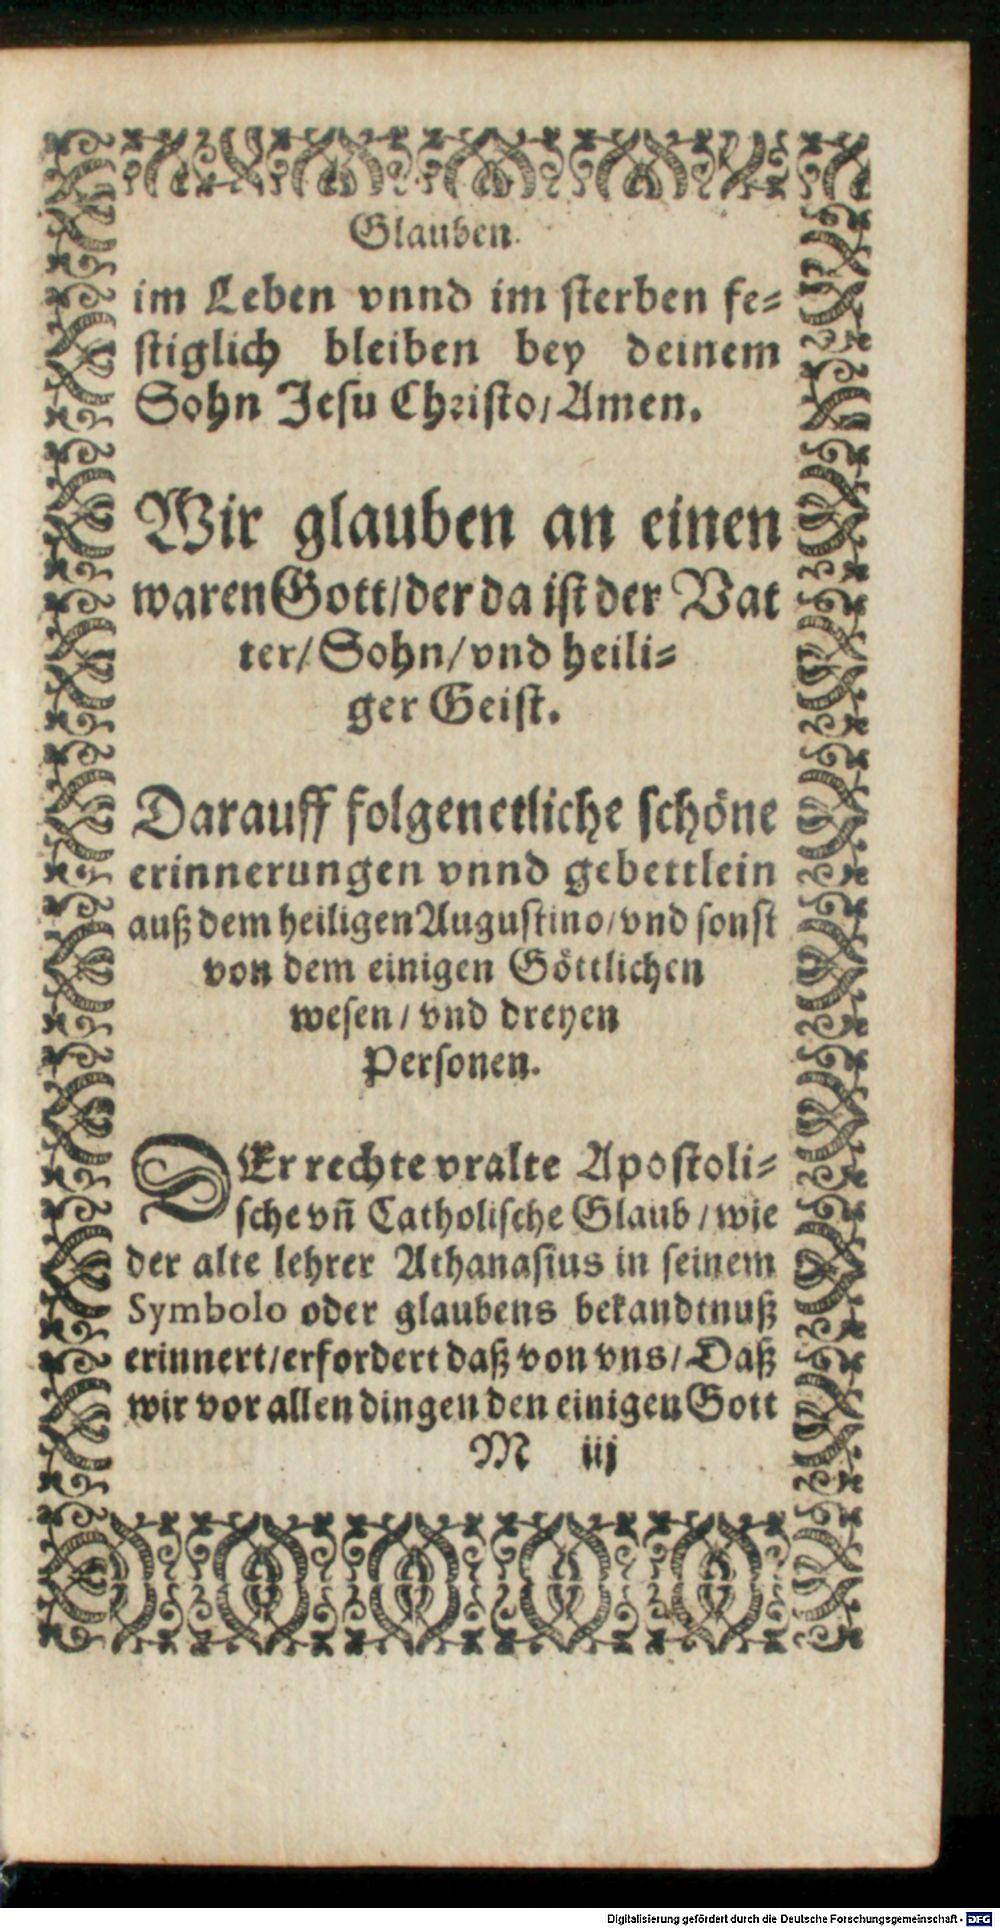 Glauben.
im Leben vnnd im sterben fe-
stiglich bleiben bey deinem
Sohn Jesu Christo/ Amen.
Wir glauben an einen
waren Gott/ der da ist der Vat
ter/ Sohn/ vnd heili-
ger Geist.
Darauff folgen etliche schöne
erinnerungen vnnd gebettlein
auß dem heiligen Augustino/ vnd sonst
von dem einigen Göttlichen
wesen/ vnd dreyen
Personen.
DEr rechte vralte Apostoli-
sche vñ Catholische Glaub/ wie
der alte lehrer Athanasius in seinem
Symbolo oder glaubens bekandtnuß
erinnert/ erfordert daß von vns/ Daß
wir vor allen dingen den einigen Gott
M iij
Digitalisierung gefördert durch die Deutsche Forschungsgemeinschaft - DFG